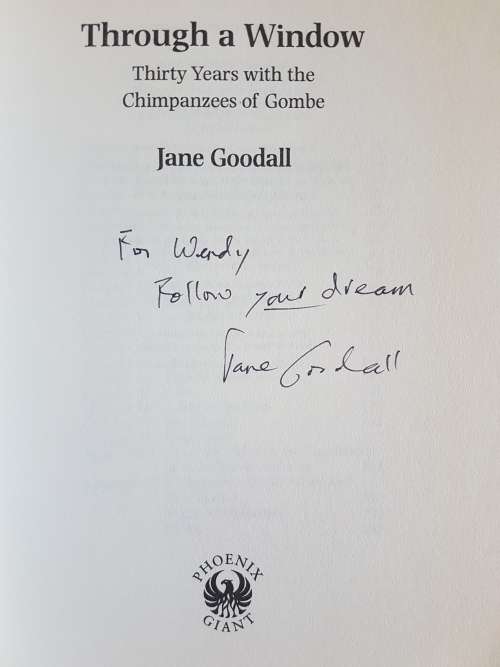 Through a Window
Thirty Years with the
Chimpanzees of Gombe
Jane Goodall
For Wendy
Follow your dream
Jane Goodall
PHOENIX
GIANT